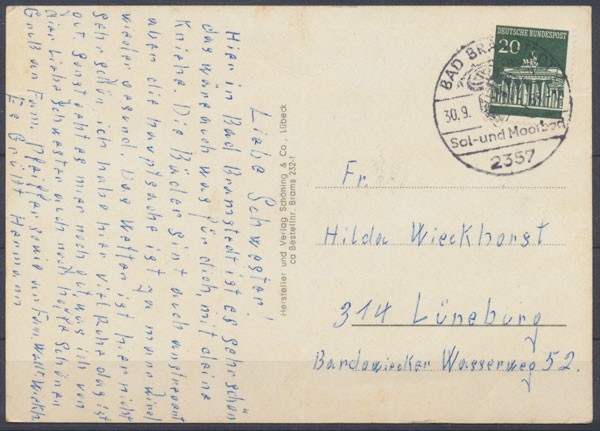 Liebe Schwester!
Hier in Bad Bramstedt ist es sehr schön
das wäre auch was für dich, mit deine
Kniehe. Die Bäder sint auch angtrennt
aben die hauptsache ist ja mann wird
wieder gesund. Das Wetter ist hier nicht
sehr schön, ich habe hier viel Ruhe das ist
gut. sonst geht es mir noch gut, was ich von
dier Liebe Schwester auch noch hoffe Schönen
Gruß an Fam. sowie an Fam Walt. Wieckh
Es Grüßt Hermann
Hersteller und Verlag Schöning & Co., Lübeck
ca Bestellnr. Brams 252-1
DEUTSCHE BUNDESPOST
20
BAD BRA
30.9.
Sol- und Moorbad
2357
Fr.
Hilda Wieckhorst
314 Lüneburg
Bardowiecker Wasserweg 52.